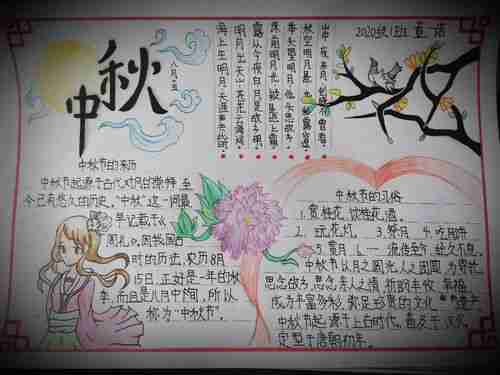 2020级1班 
中秋
八月十五
海上生明月，天涯共此时。
明月出天山，苍茫云海间。
露从今夜白，月是故乡明。
床前明月光，疑是地上霜。
举头望明月，低头思故乡。
中秋节的来历
中秋节起源于古代对月的崇拜，至
今已有悠久的历史，"中秋"这一词最
早记载于《
周礼》。因我国古
时的历法，农历8月
15日，正好是一年的秋
季，而且是八月中间，所以
称为"中秋节"。
中秋节的习俗
1.赏桂花、饮桂花酒
2. 玩花灯 3.祭月 4.吃月饼
5.赏月 6.一 流传至今，经久不息。
中秋节以月之圆兆人之团圆，为寄托
思念故乡，思念亲人之情，祈盼丰收、幸福，
成为丰富多彩，弥足珍贵的文化
中秋节起源于上古时代，普及于汉代，
定型于唐朝初年。